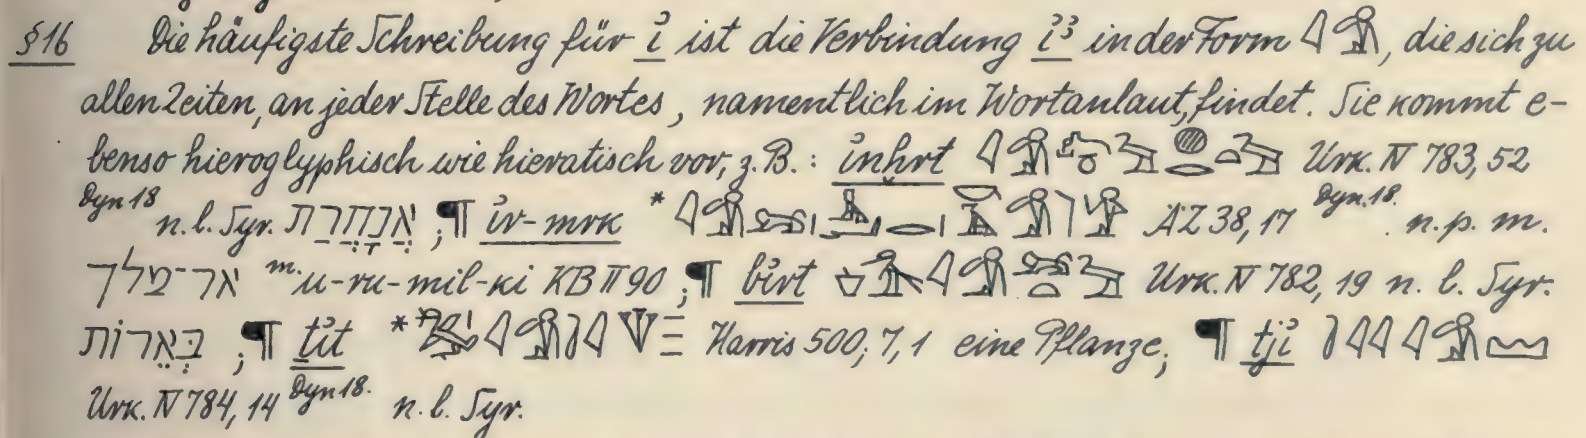 §16 Die häufigste Schreibung für i̓ ist die Verbindung i̓ꜣ in der Form 𓇋𓄿, die sich zu
allen Zeiten, an jeder Stelle des Wortes, namentlich im Wortanlaut, findet. Sie kommt e-
benso hieroglyphisch wie hieratisch vor, z. B.: i̓nḫrt Urk. IV 783, 52
Dyn 18 n. l. Syr. אֲנָחֲרַת; ¶ i̓r-mrk * ÄZ 38, 17 Dyn. 18. n. p. m.
אר־מלך m. u-ru-mil-ki KB II 90; ¶ bi̓rt Urk. IV 782, 19 n. l. Syr.
בְּאֵרוֹת; ¶ ti̓t ** Harris 500, 7, 1 eine Pflanze; ¶ tji̓
Urk. IV 784, 14 Dyn 18. n. l. Syr.